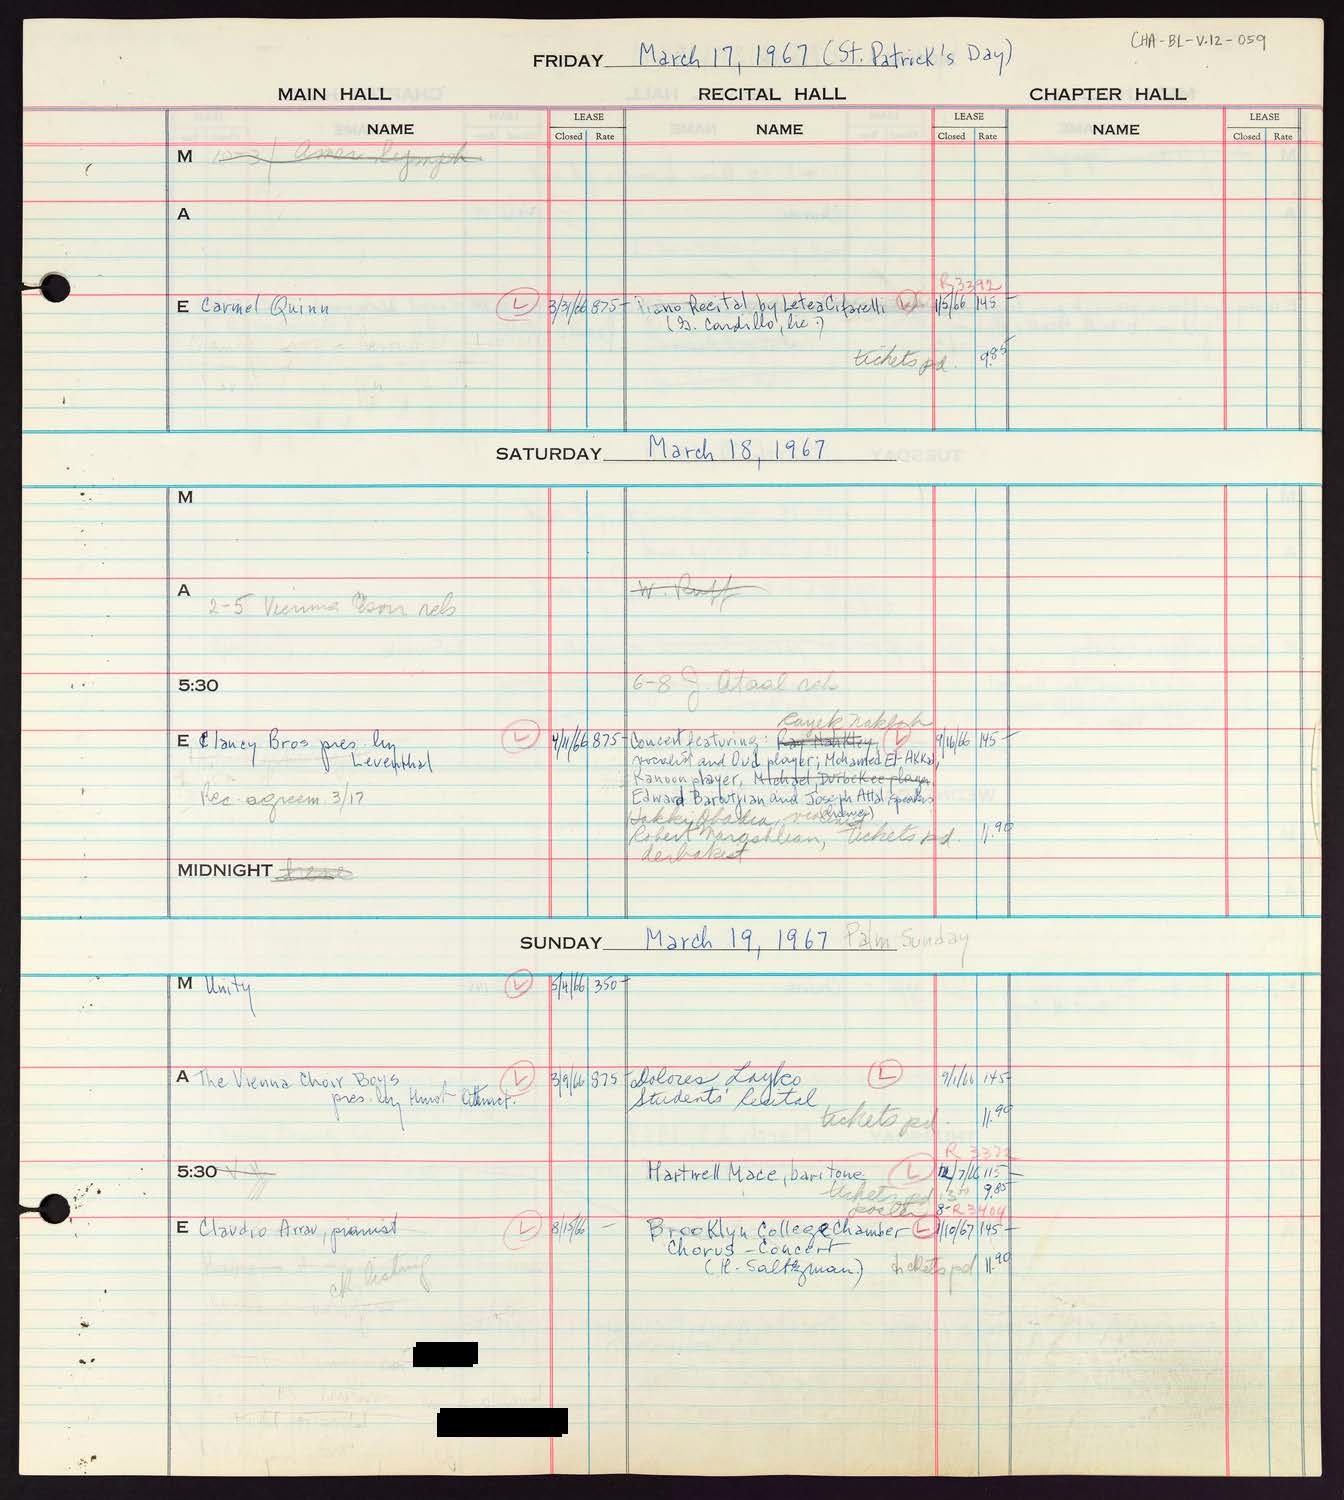 CHA-BL-V.12-059
FRIDAY March 17, 1967 (St. Patrick's Day)
MAIN HALL RECITAL HALL CHAPTER HALL
NAME LEASE NAME LEASE NAME LEASE
Closed Rate Closed Rate Closed Rate
M Amer Symph
A
R3392
E Carmel Quinn L 3/31/66 875- Piano Recital by Letea Cifarelli L 1/5/66 145-
(G. Cardillo, Inc.)
tickets pd. 9.85
SATURDAY March 18, 1967
M
A W. Ruff
2-5 Vienna Choir reh
5:30 6-8 J. Ataal reh
Rayek Nakleh
E Clancy Bros pres. by L 4/11/66 875- Concert featuring: Ray Nahkley L 9/16/66 145-
Leventhal vocalist and Oud player; Mohamed El-Akkad,
Kanoon player, Michael, Durbekee player
Rec. agreem. 3/17 Edward Baroutjian and Joseph Attal, speakers
Hakki Obadia, violinist
Robert Margoshlian, tickets pd. 11.90
derbakest
MIDNIGHT
SUNDAY March 19, 1967 Palm Sunday
M Unity L 5/4/66 350-
A The Vienna Choir Boys L 3/9/66 875- Dolores Layko L 9/1/66 145-
pres. by Hurok Attract. Students' Recital
tickets pd. 11.90
R 3372
5:30 Hartwell Mace, baritone L 12/7/66 115-
tickets pd 9.85
8- R3404
E Claudio Arrau, pianist L 8/15/66 - Brooklyn College Chamber L 1/10/67 145-
Chorus - Concert
ck listing (H. Saltzman) tickets pd 11.90